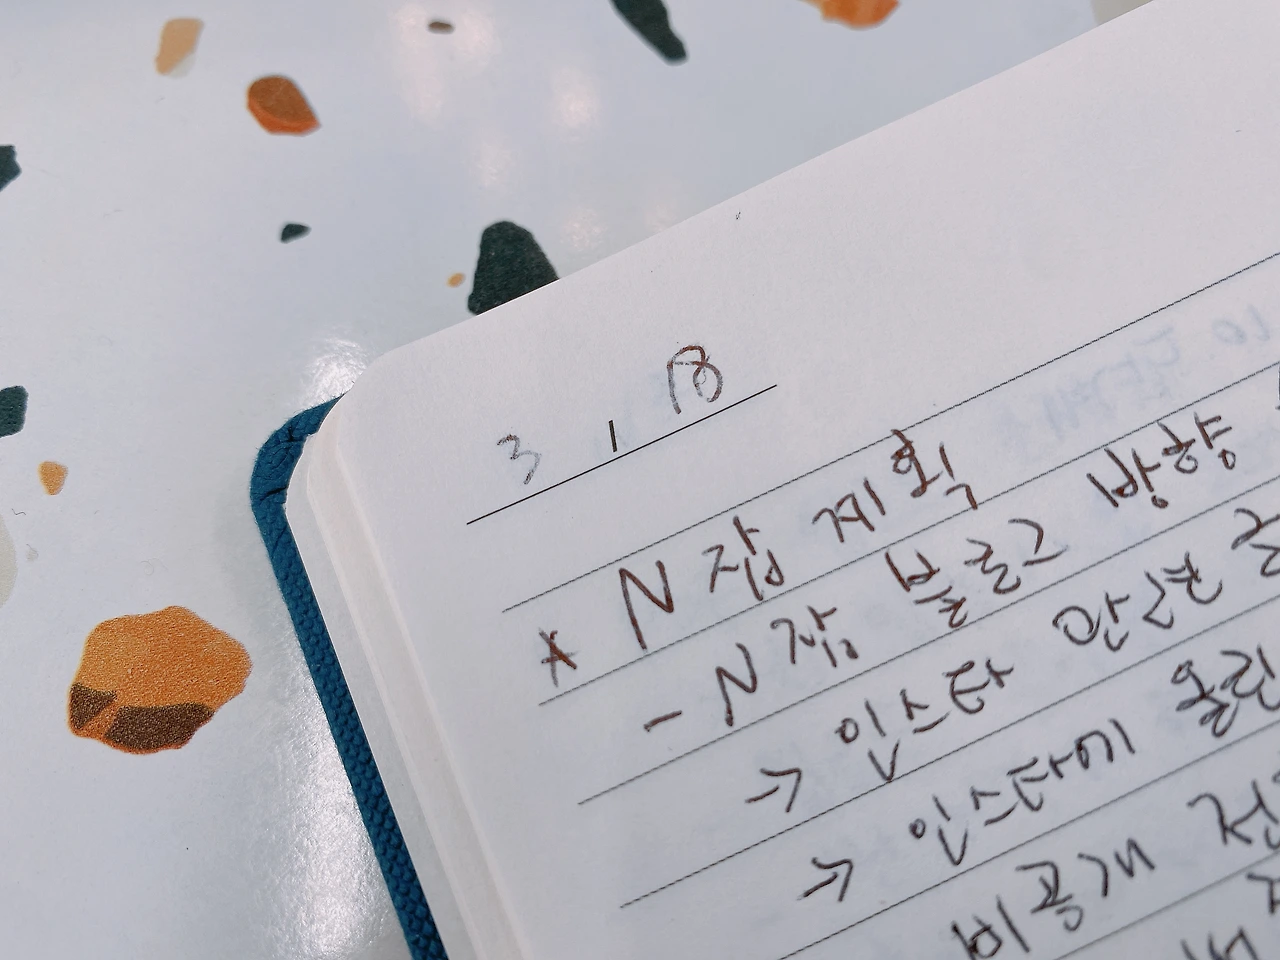 3 / 18
* N잡 계획
- N잡 블로그 방향
→ 인스타 안 쓰는
→ 인스타에 올린
비공개